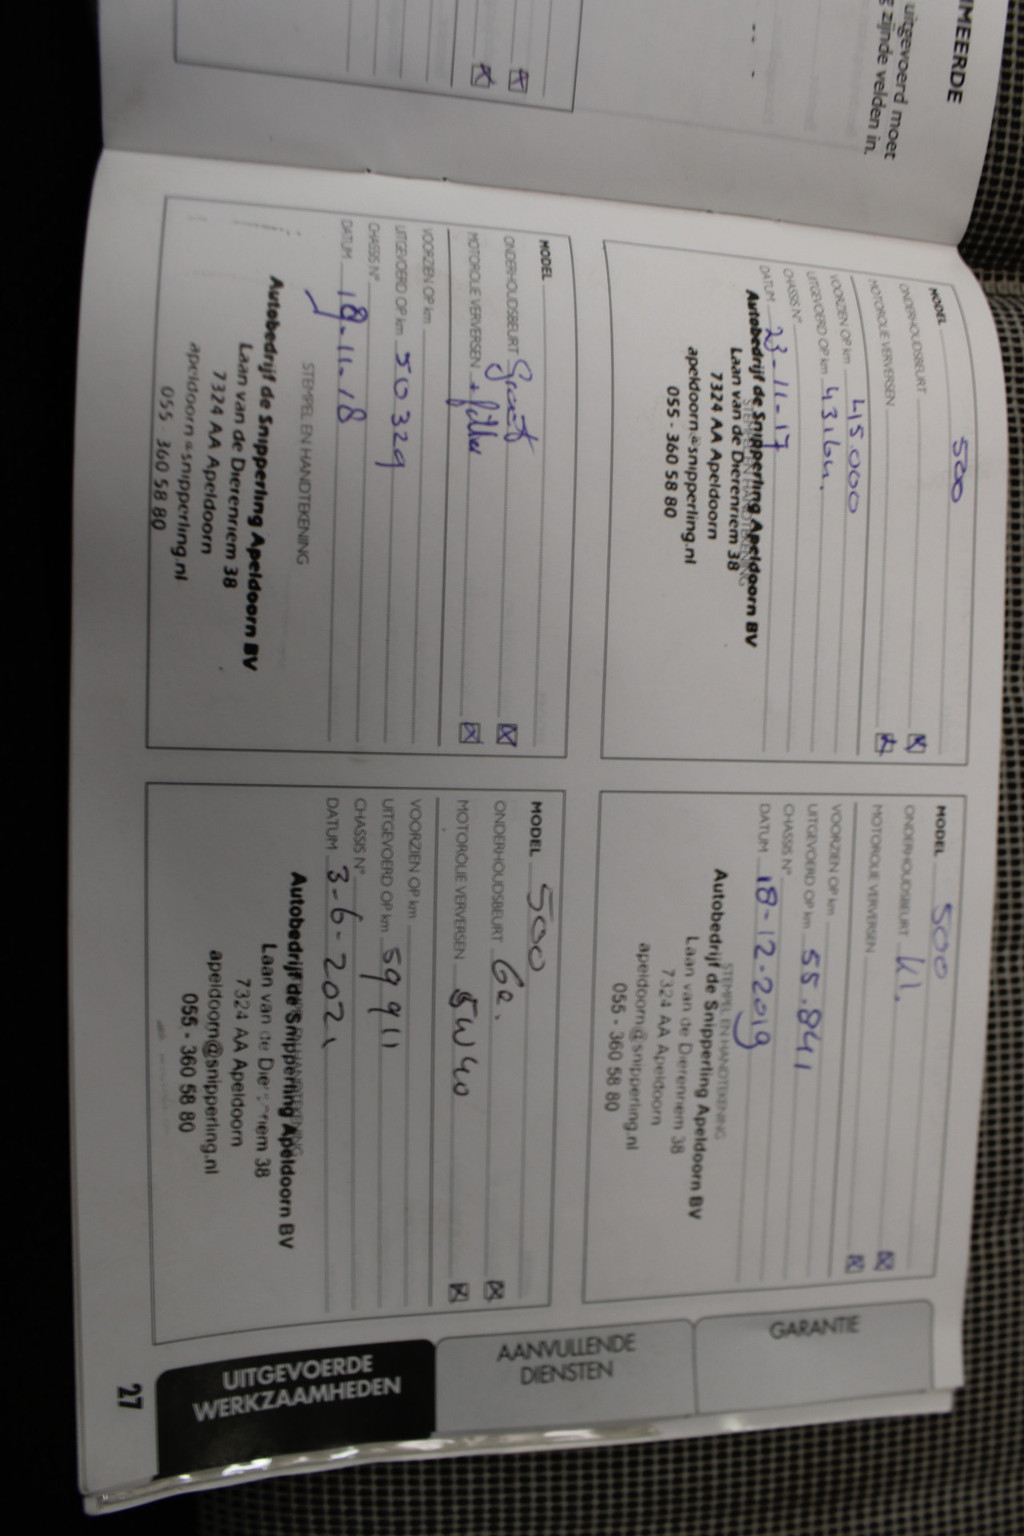 MEERDE
uitgevoerd moet
zijnde velden in.
MODEL 500
ONDERHOUDSBEURT
MOTOROLIE VERVERSEN
VOORZIEN OP km 45.000
UITGEVOERD OP km
CHASSIS N°
DATUM 23-11-17
STEMPEL EN HANDTEKENING
Autobedrijf de Snipperling Apeldoorn BV
Laan van de Dierenriem 38
7324 AA Apeldoorn
apeldoorn@snipperling.nl
055 - 360 58 80
MODEL 500
ONDERHOUDSBEURT kl.
MOTOROLIE VERVERSEN
VOORZIEN OP km
UITGEVOERD OP km 55.841
CHASSIS N°
DATUM 18-12-2019
STEMPEL EN HANDTEKENING
Autobedrijf de Snipperling Apeldoorn BV
Laan van de Dierenriem 38
7324 AA Apeldoorn
apeldoorn@snipperling.nl
055 - 360 58 80
MODEL
ONDERHOUDSBEURT Groot
MOTOROLIE VERVERSEN + filter
VOORZIEN OP km
UITGEVOERD OP km 50329
CHASSIS N°
DATUM 19-11-18
STEMPEL EN HANDTEKENING
Autobedrijf de Snipperling Apeldoorn BV
Laan van de Dierenriem 38
7324 AA Apeldoorn
apeldoorn@snipperling.nl
055 - 360 58 80
MODEL 500
ONDERHOUDSBEURT
MOTOROLIE VERVERSEN 5W40
VOORZIEN OP km
UITGEVOERD OP km 59911
CHASSIS N°
DATUM 3-6-2021
STEMPEL EN HANDTEKENING
Autobedrijf de Snipperling Apeldoorn BV
Laan van de Dierenriem 38
7324 AA Apeldoorn
apeldoorn@snipperling.nl
055 - 360 58 80
GARANTIE
AANVULLENDE
DIENSTEN
UITGEVOERDE
WERKZAAMHEDEN
27